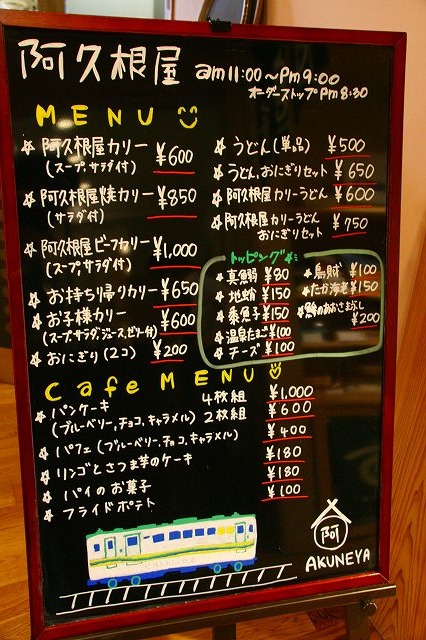 阿久根屋 am11:00〜Pm9:00
オーダーストップPm8:30
MENU
☆ 阿久根屋カリー ¥600
(スープ,サラダ付)
☆ 阿久根屋焼カリー ¥850
(サラダ付)
☆ 阿久根屋ビーフカリー ¥1,000
(スープ,サラダ付)
☆ お持ち帰りカリー ¥650
☆ お子様カリー ¥600
(スープ,サラダ,ジュース,ゼリー付)
☆ おにぎり(2コ) ¥200
☆ うどん(単品) ¥500
☆ うどん,おにぎりセット ¥650
☆ 阿久根屋カリーうどん ¥600
☆ 阿久根屋カリーうどん
おにぎりセット ¥750
トッピング
★真鰯 ¥80
★地蛸 ¥150
★ ¥150
★温泉たまご ¥100
★チーズ ¥100
★鳥賊 ¥100
★たか海老 ¥150
★のあおさまぶし
¥200
Cafe MENU
☆ パンケーキ 4枚組 ¥1,000
(ブルーベリー,チョコ,キャラメル) 2枚組 ¥600
☆ パフェ(ブルーベリー,チョコ,キャラメル) ¥400
☆ リンゴとさつま芋のケーキ ¥180
☆ パイのお菓子 ¥180
☆ フライドポテト ¥100
阿
AKUNEYA